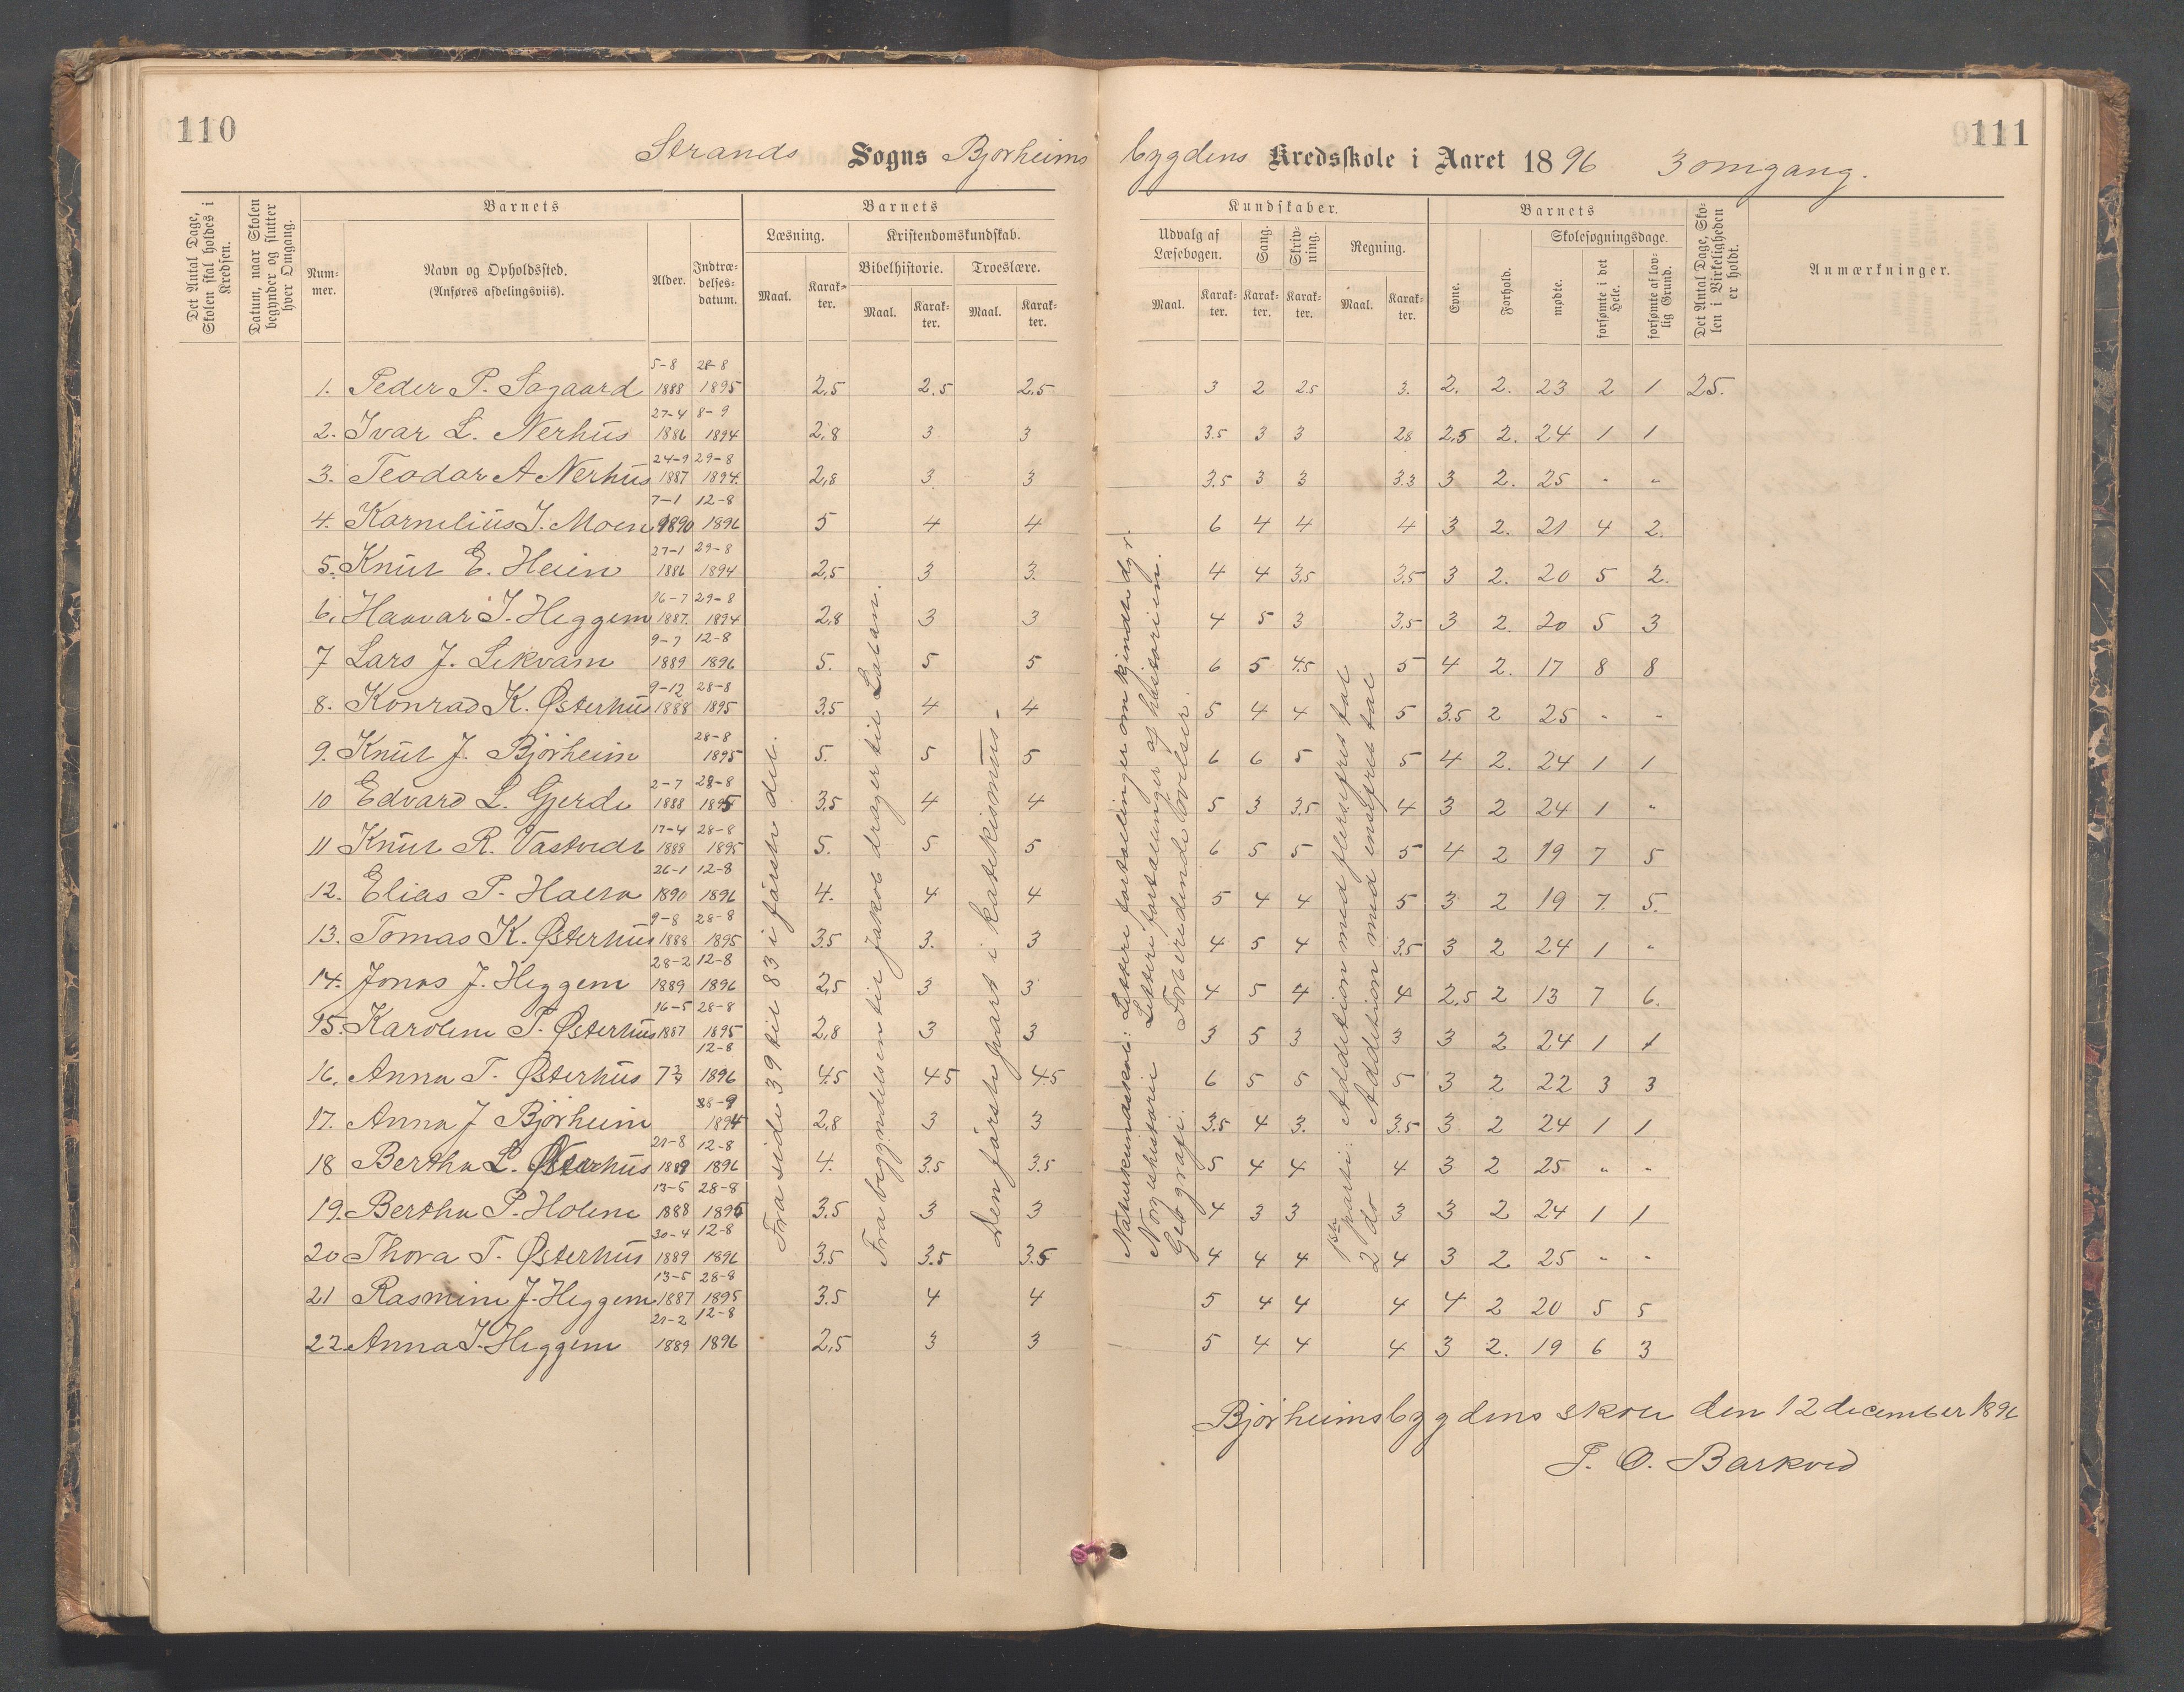 110
111
Strands Sogns Bjørheims bygdens Kredsskole i Aaret 1896 3 omgang.
Det Antal Dage, Skolen skal holdes i Kredsen.
Datum, naar Skolen begynder og slutter hver Omgang.
Barnets
Num-mer.
Navn og Opholdssted.
(Anføres afdelingsviis).
Alder.
Indtræ-delses-datum.
Barnets
Læsning.
Maal. Karak-ter.
Kristendomskundskab.
Bibelhistorie. Troeslære.
Maal. Karak-ter. Maal. Karak-ter.
Kundskaber.
Udvalg af Læsebogen.
Sang. Skriv-ning. Regning.
Maal. Karak-ter. Karak-ter. Karak-ter. Maal. Karak-ter.
Barnets
Evne. Forhold.
Skolesøgningsdage.
mødte. forsømte i det Hele. forsømte af lov-lig Grund.
Det Antal Dage, Sko-len i Virkeligheden er holdt.
Anmærkninger.
1. Peder P. Sagaard 5-8 1888 28-8 1895 2,5 2.5 2.5 3 2 2.5 3. 2. 2. 23 2 1 25.
2. Ivar L. Nerhus 27-4 1886 8-9 1894 2,8 3 3 3.5 3 3 2.8 2,5 2. 24 1 1
3. Teodor A Nerhus 24-9 1887 29-8 1894. 2,8 3 3 3.5 3 3 3.3 3 2. 25 - "
4. Kornelius I. Moen 7-1 1890 12-8 1896 5 4 4 6 4 4 4 3 2. 21 4 2.
5. Knut E. Heien 27-1 1886 29-8 1894 2,5 3 3. 4 4 3,5 3,5 3 2. 20 5 2.
6. Haavar I. Heggem 16-7 1887. 29-8 1894 2,8 3 3 4 5 3 3,5 3 2. 20 5 3
7 Lars J. Lekvam 9-7 1889 12-8 1896 5. 5 5 6 5 4.5 5 4 2. 17 8 8
8. Konrad K. Østerhus 9-12 1888 28-8 1895 3.5 4 4 5 4 4 5 3.5 2 25 - -
9. Knut J. Bjørheim 28-8 1895 5. 5 5 6 6 5 5 4 2. 24 1 1
10 Edvard L. Gjerde 2-7 1888 28-8 1895 3.5 4 4 5 3 3.5 4 3 2 24 1 "
11 Knut R. Vastvedt 17-4 1888 28-8 1895 5. 5 5 6 5 5 5 4 2 19 7 5
12. Elias P. Holen 26-1 1890 12-8 1896 4. 4 4 5 4 4 5 3 2 19 7. 5.
13. Tomas K. Østerhus 9-8 1888 28-8 1895 3.5 3. 3 4 5 4 3.5 3 2 24 1 "
14. Jonas J. Heggem 28-2 1889 12-8 1896 2,5 3 3 4 5 4 4 2,5 2 13 7 6.
15. Karoline T. Østerhus 16-5 1887 28-8 1895 2,8 3 3 3 5 3 3 3 2 24 1 1
16. Anna T. Østerhus 12-8 1896 4.5 4.5 4.5 6 5 5 5 3 2 22 3 3
17. Anna J Bjørheim 1894 2,8 3 3 3.5 4 3. 3.5 3 2 24 1 1
18 Bertha L. Østerhus 21-8 1889 12-8 1896 4. 3.5 3.5 5 4 4 4 3 2 25 " "
19. Bertha P. Holene 13-5 1888 28-8 1895 3.5 3 3 4 3 3 3 3 2 24 1 1
20 Thora T. Østerhus 30-4 1889 12-8 1896 3.5 3.5 3.5 4 4 4 4 3 2 25 - -
21 Rasmine J. Heggem 13-5 1887 28-8 1895 3.5 4 4 5 4 4 4 4 2 20 5 5
22. Anna I. Heggem 21-2 1889 12-8 1896 2,5 3 3 5 4 4 4 3 2. 19 6 3
Fra side 39 til 83 i første del.
Fra begyndelsen til Jakob drager til Laban.
Den første part i katekismus.
Naturkundskab: Lettere fortællinger om kjendte dyr.
Norgeshistorie Lettere fortællinger af historien.
Geografi. Forberedende øvelser.
1ste parti: Addition med flersifret tal
2 do Addition med ensifret tal
Bjørheimsbygdens skole den 12 december 1896
T. O. Barkved